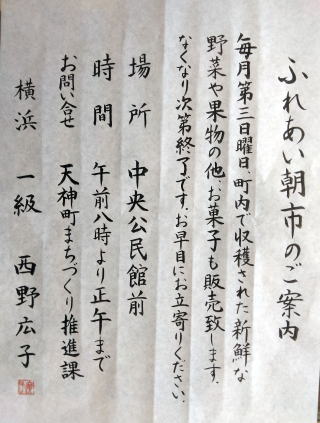 ふれあい朝市のご案内
毎月第三日曜日、町内で収穫された新鮮な
野菜や果物の他、お菓子も販売致します。
なくなり次第終了です。お早目にお立寄りください。
場所 中央公民館前
時間 午前八時より正午まで
お問い合せ 天神町まちづくり推進課
横浜 一級 西野広子